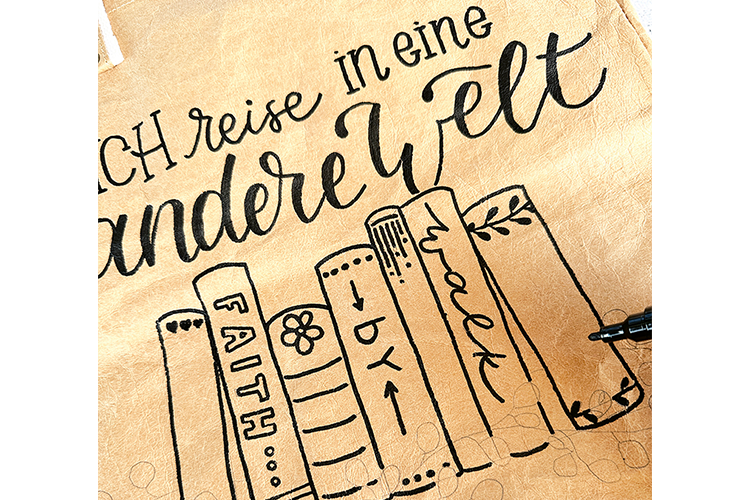 ICH reise in eine
andere Welt
FAITH...
→ by ←
walk